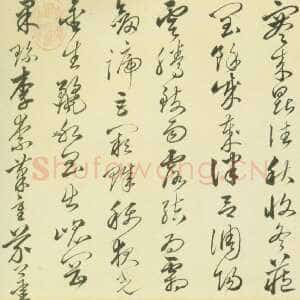 寒來暑往秋收冬藏
閏餘成歲律呂調陽
雲騰致雨露結為霜
劍號巨闕珠稱夜光
金生麗水玉出崑岡
果珍李柰菜重芥薑
Shufawang.CN